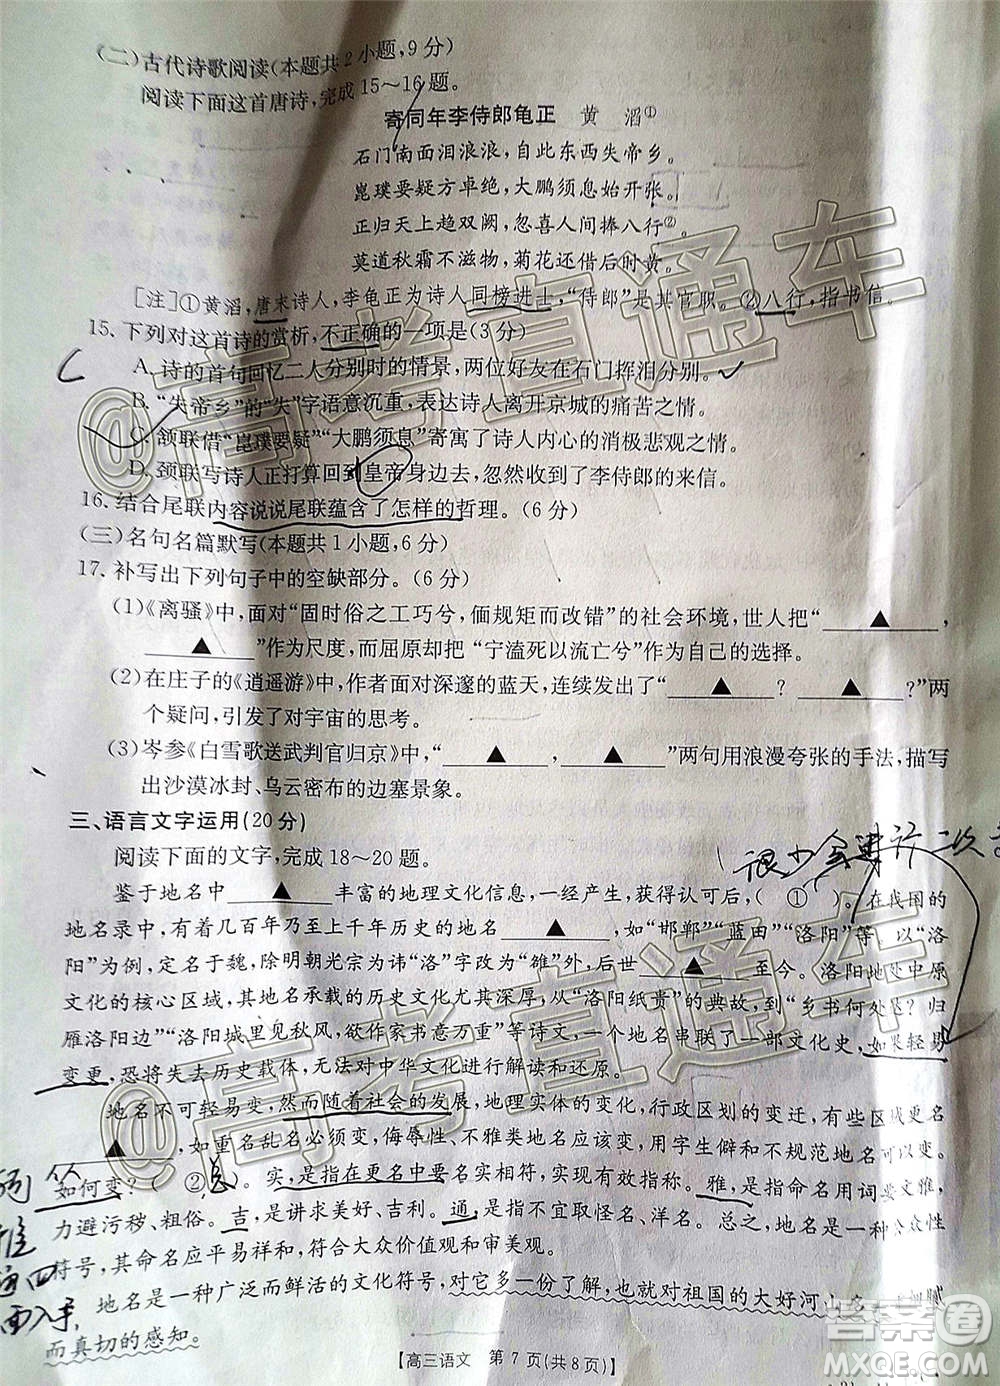 (二)古代诗歌阅读(本题共2小题,9分)
阅读下面这首唐诗,完成15～16题。
寄同年李侍郎龟正 黄 滔①
石门南面泪浪浪,自此东西失帝乡。
崑璞要疑方卓绝,大鹏须息始开张。
正归天上趋双阙,忽喜人间捧八行②
莫道秋霜不滋物,菊花还借后时黄。
[注]①黄滔,唐末诗人,李龟正为诗人同榜进士,“侍郎”是其官职。②八行,指书信。
15.下列对这首诗的赏析,不正确的一项是(3分)
C
A.诗的首句回忆二人分别时的情景,两位好友在石门挥泪分别。
B.“失帝乡”的“失”字语意沉重,表达诗人离开京城的痛苦之情。
C.颔联借“崑璞要疑”“大鹏须息”寄寓了诗人内心的消极悲观之情。
D.颈联写诗人正打算回到皇帝身边去,忽然收到了李侍郎的来信。
16.结合尾联内容说说尾联蕴含了怎样的哲理。(6分)
(三)名句名篇默写(本题共1小题,6分)
17.补写出下列句子中的空缺部分。(6分)
(1)《离骚》中,面对“固时俗之工巧兮,偭规矩而改错”的社会环境,世人把“▲,
▲”作为尺度,而屈原却把“宁溘死以流亡兮”作为自己的选择。
(2)在庄子的《逍遥游》中,作者面对深邃的蓝天,连续发出了“▲?▲?”两
个疑问,引发了对宇宙的思考。
(3)岑参《白雪歌送武判官归京》中,“▲,▲”两句用浪漫夸张的手法,描写
出沙漠冰封、乌云密布的边塞景象。
三、语言文字运用(20分)
阅读下面的文字,完成18～20题。
很少会进行二次
鉴于地名中▲丰富的地理文化信息,一经产生,获得认可后,(①)。在我国的
地名录中,有着几百年乃至上千年历史的地名▲,如“邯郸”“蓝田”“洛阳”等。以“洛
阳”为例,定名于魏,除明朝光宗为讳“洛”字改为“雒”外,后世▲至今。洛阳地处中原
文化的核心区域,其地名承载的历史文化尤其深厚,从“洛阳纸贵”的典故,到“乡书何处达?归
雁洛阳边”“洛阳城里见秋风,欲作家书意万重”等诗文,一个地名串联了一部文化史,如果轻易
变更,恐将失去历史载体,无法对中华文化进行解读和还原。
地名不可轻易变,然而随着社会的发展,地理实体的变化,行政区划的变迁,有些区域更名
▲,如重名乱名必须变,侮辱性、不雅类地名应该变,用字生僻和不规范类地名需要变。
如何变?(②)。实,是指在更名中要名实相符,切实指称。雅,是指命名用词要文雅,
力避污秽、粗俗。吉,是讲求美好、吉利。通,是指不宜取怪名、洋名。总之,地名是一种公众性
符号,其命名应平易祥和,符合大众价值观和审美观。
地名是一种广泛而鲜活的文化符号,对它多一份了解,也就对祖国的大好河山多
而真切的感知。
【高三语文 第7页(共8页)】
@高考直通车
@高考直通车
答案圈
MXQE.COM